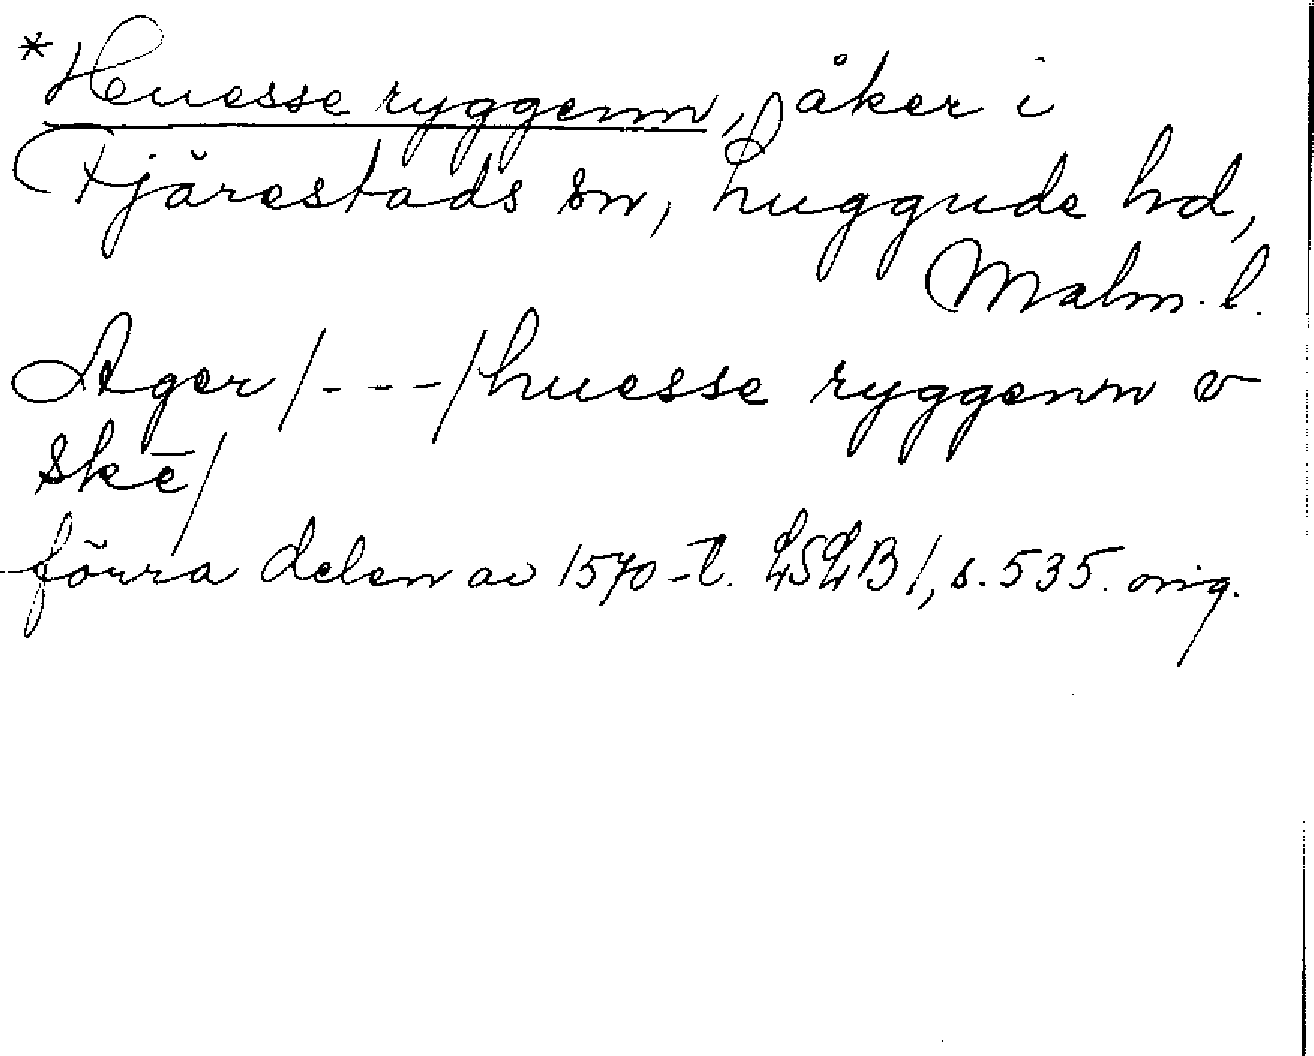 *Huesse ryggenn, åker i
Fjärestads sn, Luggude hd,
Malm. l.
Ager /---/ huesse ryggenn v
skē/
förra delen av 1570-t. LSLB 1, s. 535. orig.